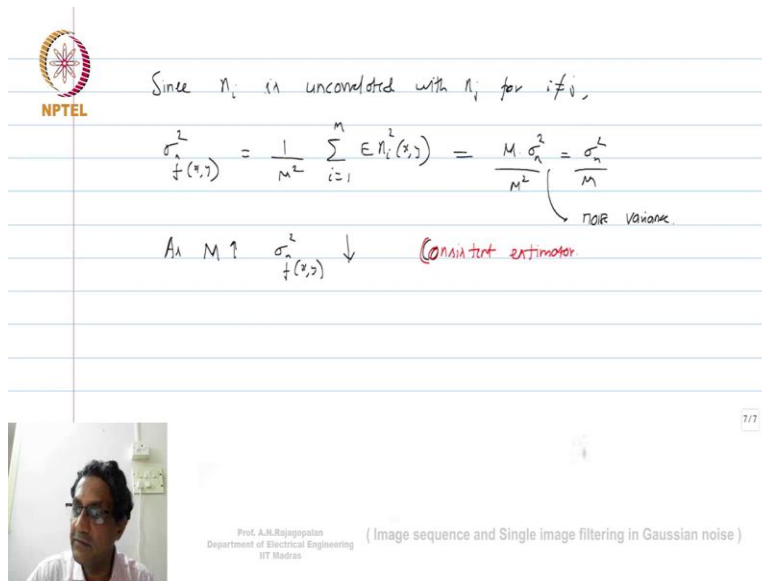 Since n_i is uncorrelated with n_j for i≠j,
NPTEL
σ²_f̂(x,y) = 1/M² Σ_{i=1}^{M} E n_i²(x,y) = M·σ_n²/M² = σ_n²/M
noise variance.
As M↑ σ²_f̂(x,y) ↓ Consistent estimator.
7/7
Prof. A.N.Rajagopalan
Department of Electrical Engineering
IIT Madras
( Image sequence and Single image filtering in Gaussian noise )